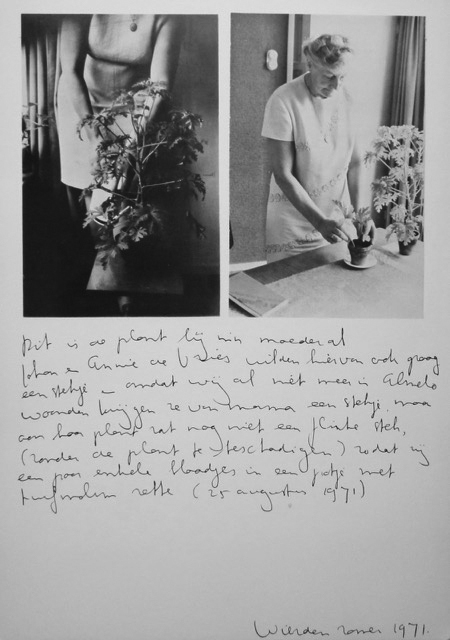 Dit is de plant bij mijn moeder al
Johan en Annie de Vries wilden hiervan ook graag
een stekje – omdat wij al niet meer in Almelo
woonden krijgen ze van mama een stekje, maar
aan haar plant zat nog niet een flinke stek,
(zonder de plant te beschadigen) zodat zij
een paar enkele blaadjes in een potje met
turfmolm zette (25 augustus 1971)
Wierden zomer 1971.